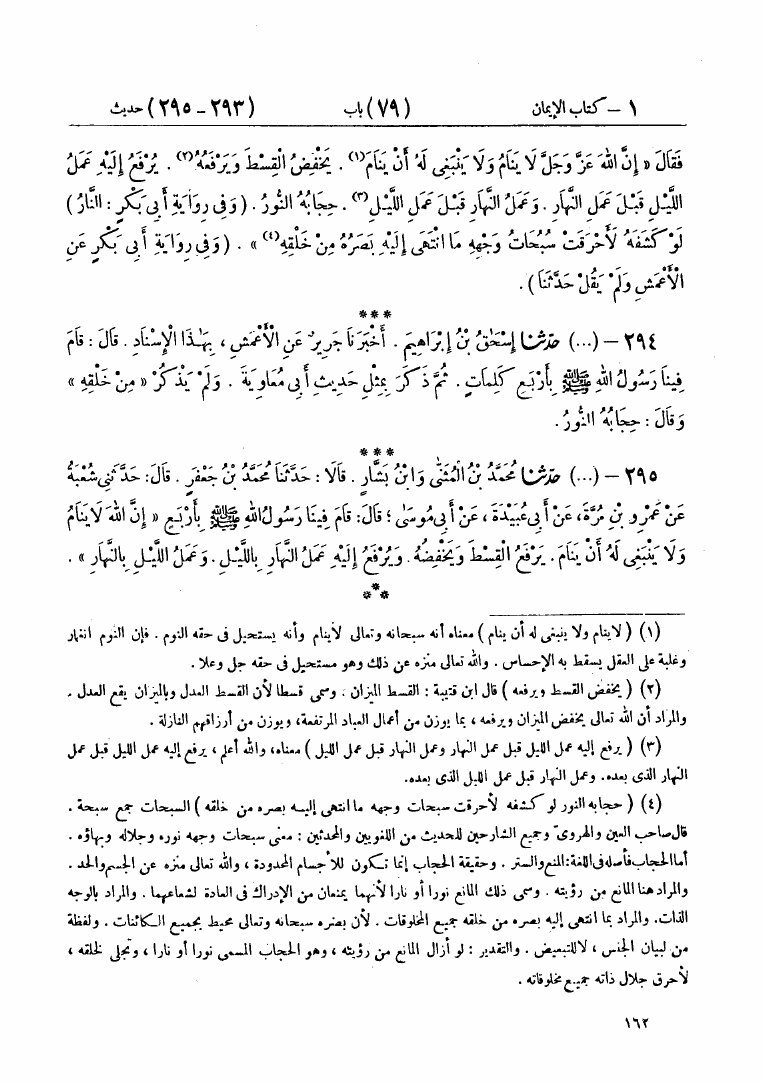 ١ – كتاب الإيمان (٧٩) باب (٢٩٣ – ٢٩٥) حديث
فَقَالَ « إِنَّ اللهَ عَزَّ وَجَلَّ لَا يَنَامُ وَلَا يَنْبَغِى لَهُ أَنْ يَنَامَ(١) . يَخْفِضُ الْقِسْطَ وَيَرْفَعُهُ(٢) . يُرْفَعُ إِلَيْهِ عَمَلُ
اللَّيْلِ قَبْلَ عَمَلِ النَّهَارِ . وَعَمَلُ النَّهَارِ قَبْلَ عَمَلِ اللَّيْلِ(٣) . حِجَابُهُ النُّورُ . ( وَفِى رِوَايَةِ أَبِى بَكْرٍ : النَّارُ )
لَوْ كَشَفَهُ لَأَحْرَقَتْ سُبُحَاتُ وَجْهِهِ مَا انْتَهَى إِلَيْهِ بَصَرُهُ مِنْ خَلْقِهِ(٤) » . ( وَفِى رِوَايَةِ أَبِى بَكْرٍ عَنِ
الْأَعْمَشِ وَلَمْ يَقُلْ حَدَّثَنَا ) .
***
٢٩٤ – (...) حدّثنا إِسْحَٰقُ بْنُ إِبْرَاهِيمَ . أَخْبَرَنَا جَرِيرٌ عَنِ الْأَعْمَشِ ، بِهَٰذَا الْإِسْنَادِ . قَالَ : قَامَ
فِينَا رَسُولُ اللهِ ﷺ بِأَرْبَعِ كَلِمَاتٍ . ثُمَّ ذَكَرَ بِمِثْلِ حَدِيثِ أَبِى مُعَاوِيَةَ . وَلَمْ يَذْكُرْ « مِنْ خَلْقِهِ »
وَقَالَ : حِجَابُهُ النُّورُ .
***
٢٩٥ – (...) حدّثنا مُحَمَّدُ بْنُ الْمُثَنَّى وَابْنُ بَشَّارٍ . قَالَا : حَدَّثَنَا مُحَمَّدُ بْنُ جَعْفَرٍ . قَالَ : حَدَّثَنِى شُعْبَةُ
عَنْ عَمْرِو بْنِ مُرَّةَ ، عَنْ أَبِى عُبَيْدَةَ ، عَنْ أَبِى مُوسَى ؛ قَالَ : قَامَ فِينَا رَسُولُ اللهِ ﷺ بِأَرْبَعٍ « إِنَّ اللهَ لَا يَنَامُ
وَلَا يَنْبَغِى لَهُ أَنْ يَنَامَ . يَرْفَعُ الْقِسْطَ وَيَخْفِضُهُ . وَيُرْفَعُ إِلَيْهِ عَمَلُ النَّهَارِ بِاللَّيْلِ . وَعَمَلُ اللَّيْلِ بِالنَّهَارِ » .
***
(١) ( لاينام ولا ينبغى له أن ينام ) معناه أنه سبحانه وتعالى لاينام وأنه يستحيل فى حقه النوم . فإن النوم انغمار
وغلبة على العقل يسقط به الإحساس . والله تعالى منزه عن ذلك وهو مستحيل فى حقه جل وعلا .
(٢) ( يخفض القسط ويرفعه ) قال ابن قتيبة : القسط الميزان . وسمى قسطا لأن القسط العدل وبالميزان يقع العدل .
والمراد أن الله تعالى يخفض الميزان ويرفعه ، بما يوزن من أعمال العباد المرتفعة، ويوزن من أرزاقهم النازلة .
(٣) ( يرفع إليه عمل الليل قبل عمل النهار وعمل النهار قبل عمل الليل ) معناه، والله أعلم ، يرفع إليه عمل الليل قبل عمل
النهار الذى بعده. وعمل النهار قبل عمل الليل الذى بعده.
(٤) ( حجابه النور لو كشفه لأحرقت سبحات وجهه ما انتهى إليه بصره من خلقه ) السبحات جمع سبحة .
قال صاحب العين والهروىّ وجميع الشارحين للحديث من اللغويين والمحدثين : معنى سبحات وجهه نوره وجلاله وبهاؤه .
أما الحجاب فأصله فى اللغة: المنع والستر . وحقيقة الحجاب إنما تكون للأجسام المحدودة ، والله تعالى منزه عن الجسم والحد .
والمراد هنا المانع من رؤيته . وسمى ذلك المانع نورا أو نارا لأنهما يمنعان من الإدراك فى العادة لشعاعهما . والمراد بالوجه
الذات. والمراد بما انتهى إليه بصره من خلقه جميع المخلوقات . لأن بصره سبحانه وتعالى محيط بجميع الكائنات . ولفظة
من لبيان الجنس ، لاللتبعيض . والتقدير : لو أزال المانع من رؤيته ، وهو الحجاب المسمى نورا أو نارا ، وتجلى لخلقه ،
لأحرق جلال ذاته جميع مخلوقاته .
١٦٢